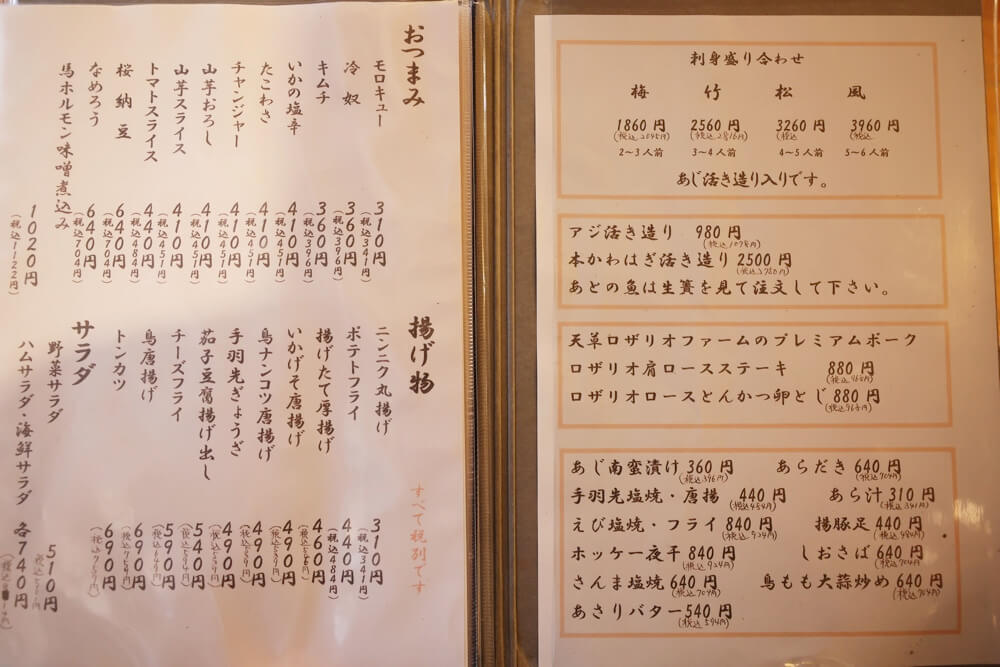 おつまみ
モロキュー 310円 (税込341円)
冷奴 360円 (税込396円)
キムチ 360円 (税込396円)
いかの塩辛 410円 (税込451円)
たこわさ 410円 (税込451円)
チャンジャー 410円 (税込451円)
山芋おろし 410円 (税込451円)
山芋スライス 410円 (税込451円)
トマトスライス 440円 (税込484円)
桜納豆 640円 (税込704円)
なめろう 640円 (税込704円)
馬ホルモン味噌煮込み 1020円 (税込1122円)
揚げ物
すべて税別です
ニンニク丸揚げ 310円 (税込341円)
ポテトフライ 440円 (税込484円)
揚げたて厚揚げ 460円
いかげそ唐揚げ 490円 (税込539円)
鳥ナンコツ唐揚げ 490円 (税込539円)
手羽先ぎょうざ 490円 (税込539円)
茄子豆腐揚げ出し 540円 (税込594円)
チーズフライ 590円 (税込649円)
鳥唐揚げ 690円 (税込759円)
トンカツ 690円 (税込759円)
サラダ
野菜サラダ 510円
ハムサラダ・海鮮サラダ 各740円
刺身盛り合わせ
梅 竹 松 風
1860円 2560円 3260円 3960円
(税込2045円) (税込2816円) (税込 (税込
2〜3人前 3〜4人前 4〜5人前 5〜6人前
あじ活き造り入りです。
アジ活き造り 980円
(税込1078円)
本かわはぎ活き造り 2500円
あとの魚は生簀を見て注文して下さい。
天草ロザリオファームのプレミアムポーク
ロザリオ肩ロースステーキ 880円
(税込968円)
ロザリオロースとんかつ卵とじ 880円
(税込968円)
あじ南蛮漬け 360円 (税込396円) あらだき 640円 (税込704円)
手羽先塩焼・唐揚 440円 (税込484円) あら汁 310円 (税込341円)
えび塩焼・フライ 840円 (税込924円) 揚豚足 440円 (税込484円)
ホッケ一夜干 840円 (税込924円) しおさば 640円 (税込704円)
さんま塩焼 640円 (税込704) 鳥もも大蒜炒め 640円 (税込704円)
あさりバター 540円 (税込594円)